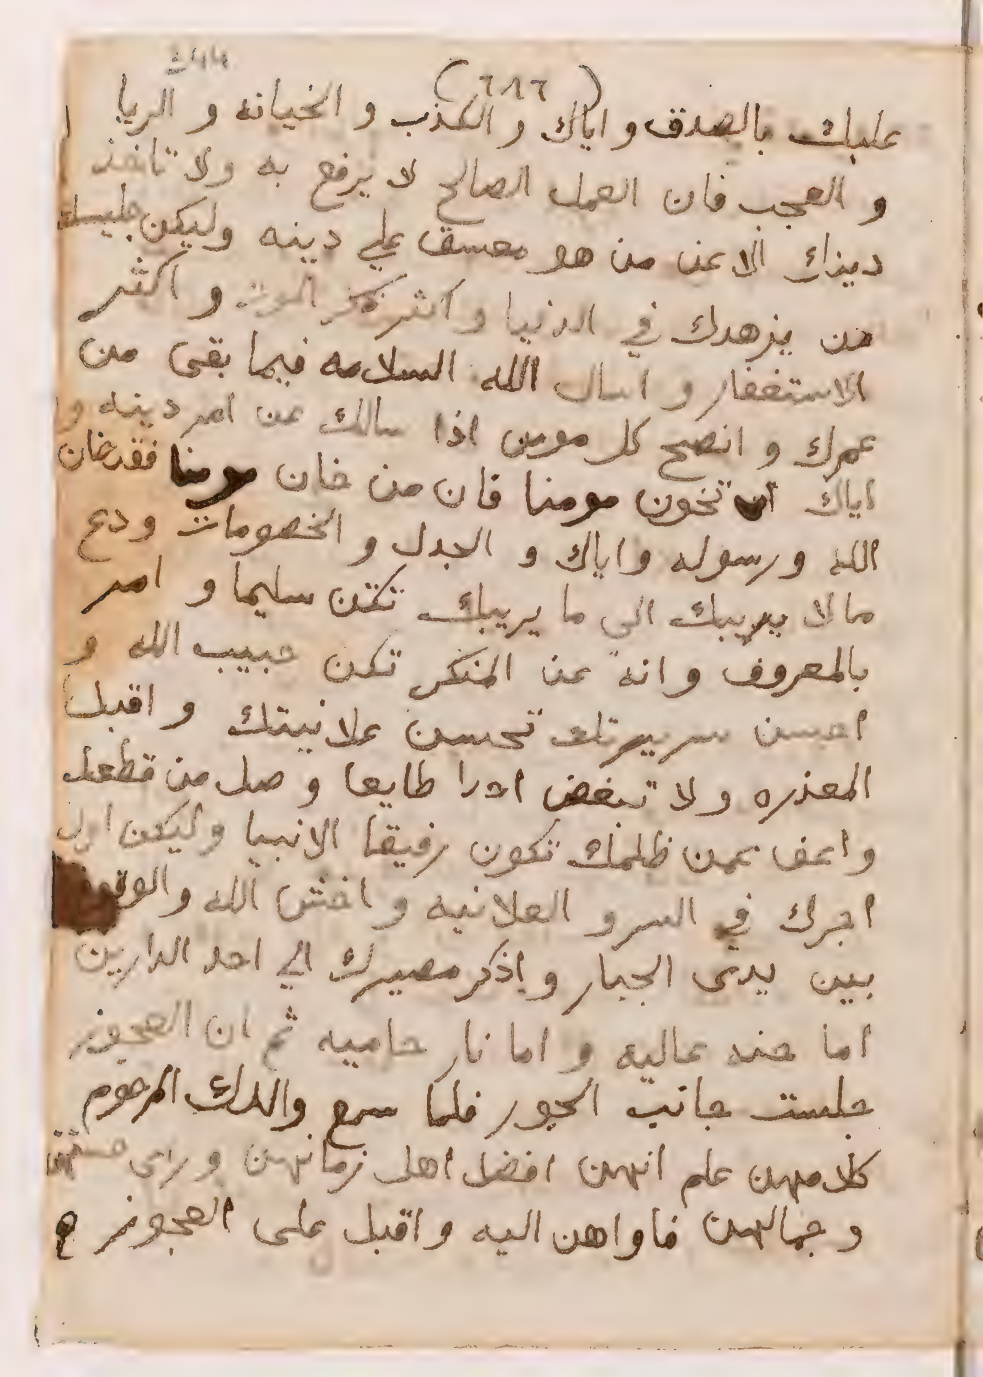 (٦٨٦)
عليك بالصدق و اياك و الكذب و الخيانه و الريا
و العجب فان العمل الصالح لا يرفع به ولا تاخذ
دينك الا عن من هو مشفق علي دينه وليكن جليسك
من يزهدك في الدنيا و اكثر ذكر الموت و اكثر
الاستغفار و اسال الله السلامه فيما بقى من
عمرك و انصح كل مومن اذا سالك عن امر دينه و
اياك ان تخون مومنا فان من خان مومنا فقد خان
الله ورسوله واياك و الجدل و الخصومات ودع
مالا يريبك الي ما يريبك تكن سليما و امر
بالمعروف وانه عن المنكر تكن حبيب الله و
احسن سريرتك تحسن علانيتك و اقبل
المعذره ولا تبغض احدا طايعا و صل من قطعك
واعف عمن ظلمك تكون رفيقا الانبيا وليكن اول
امرك في السر و العلانيه و اخش الله والوقوف
بين يدى الجبار و اذكر مصيرك الي احد الدارين
اما جنه عاليه و اما نار حاميه ثم ان العجوز
جلست جانب الجور فلما سمع والدك المرحوم
كلامهن علم انهن افضل اهل زمانهن وراى حسنهن
و جمالهن فاواهن اليه واقبل على العجوز